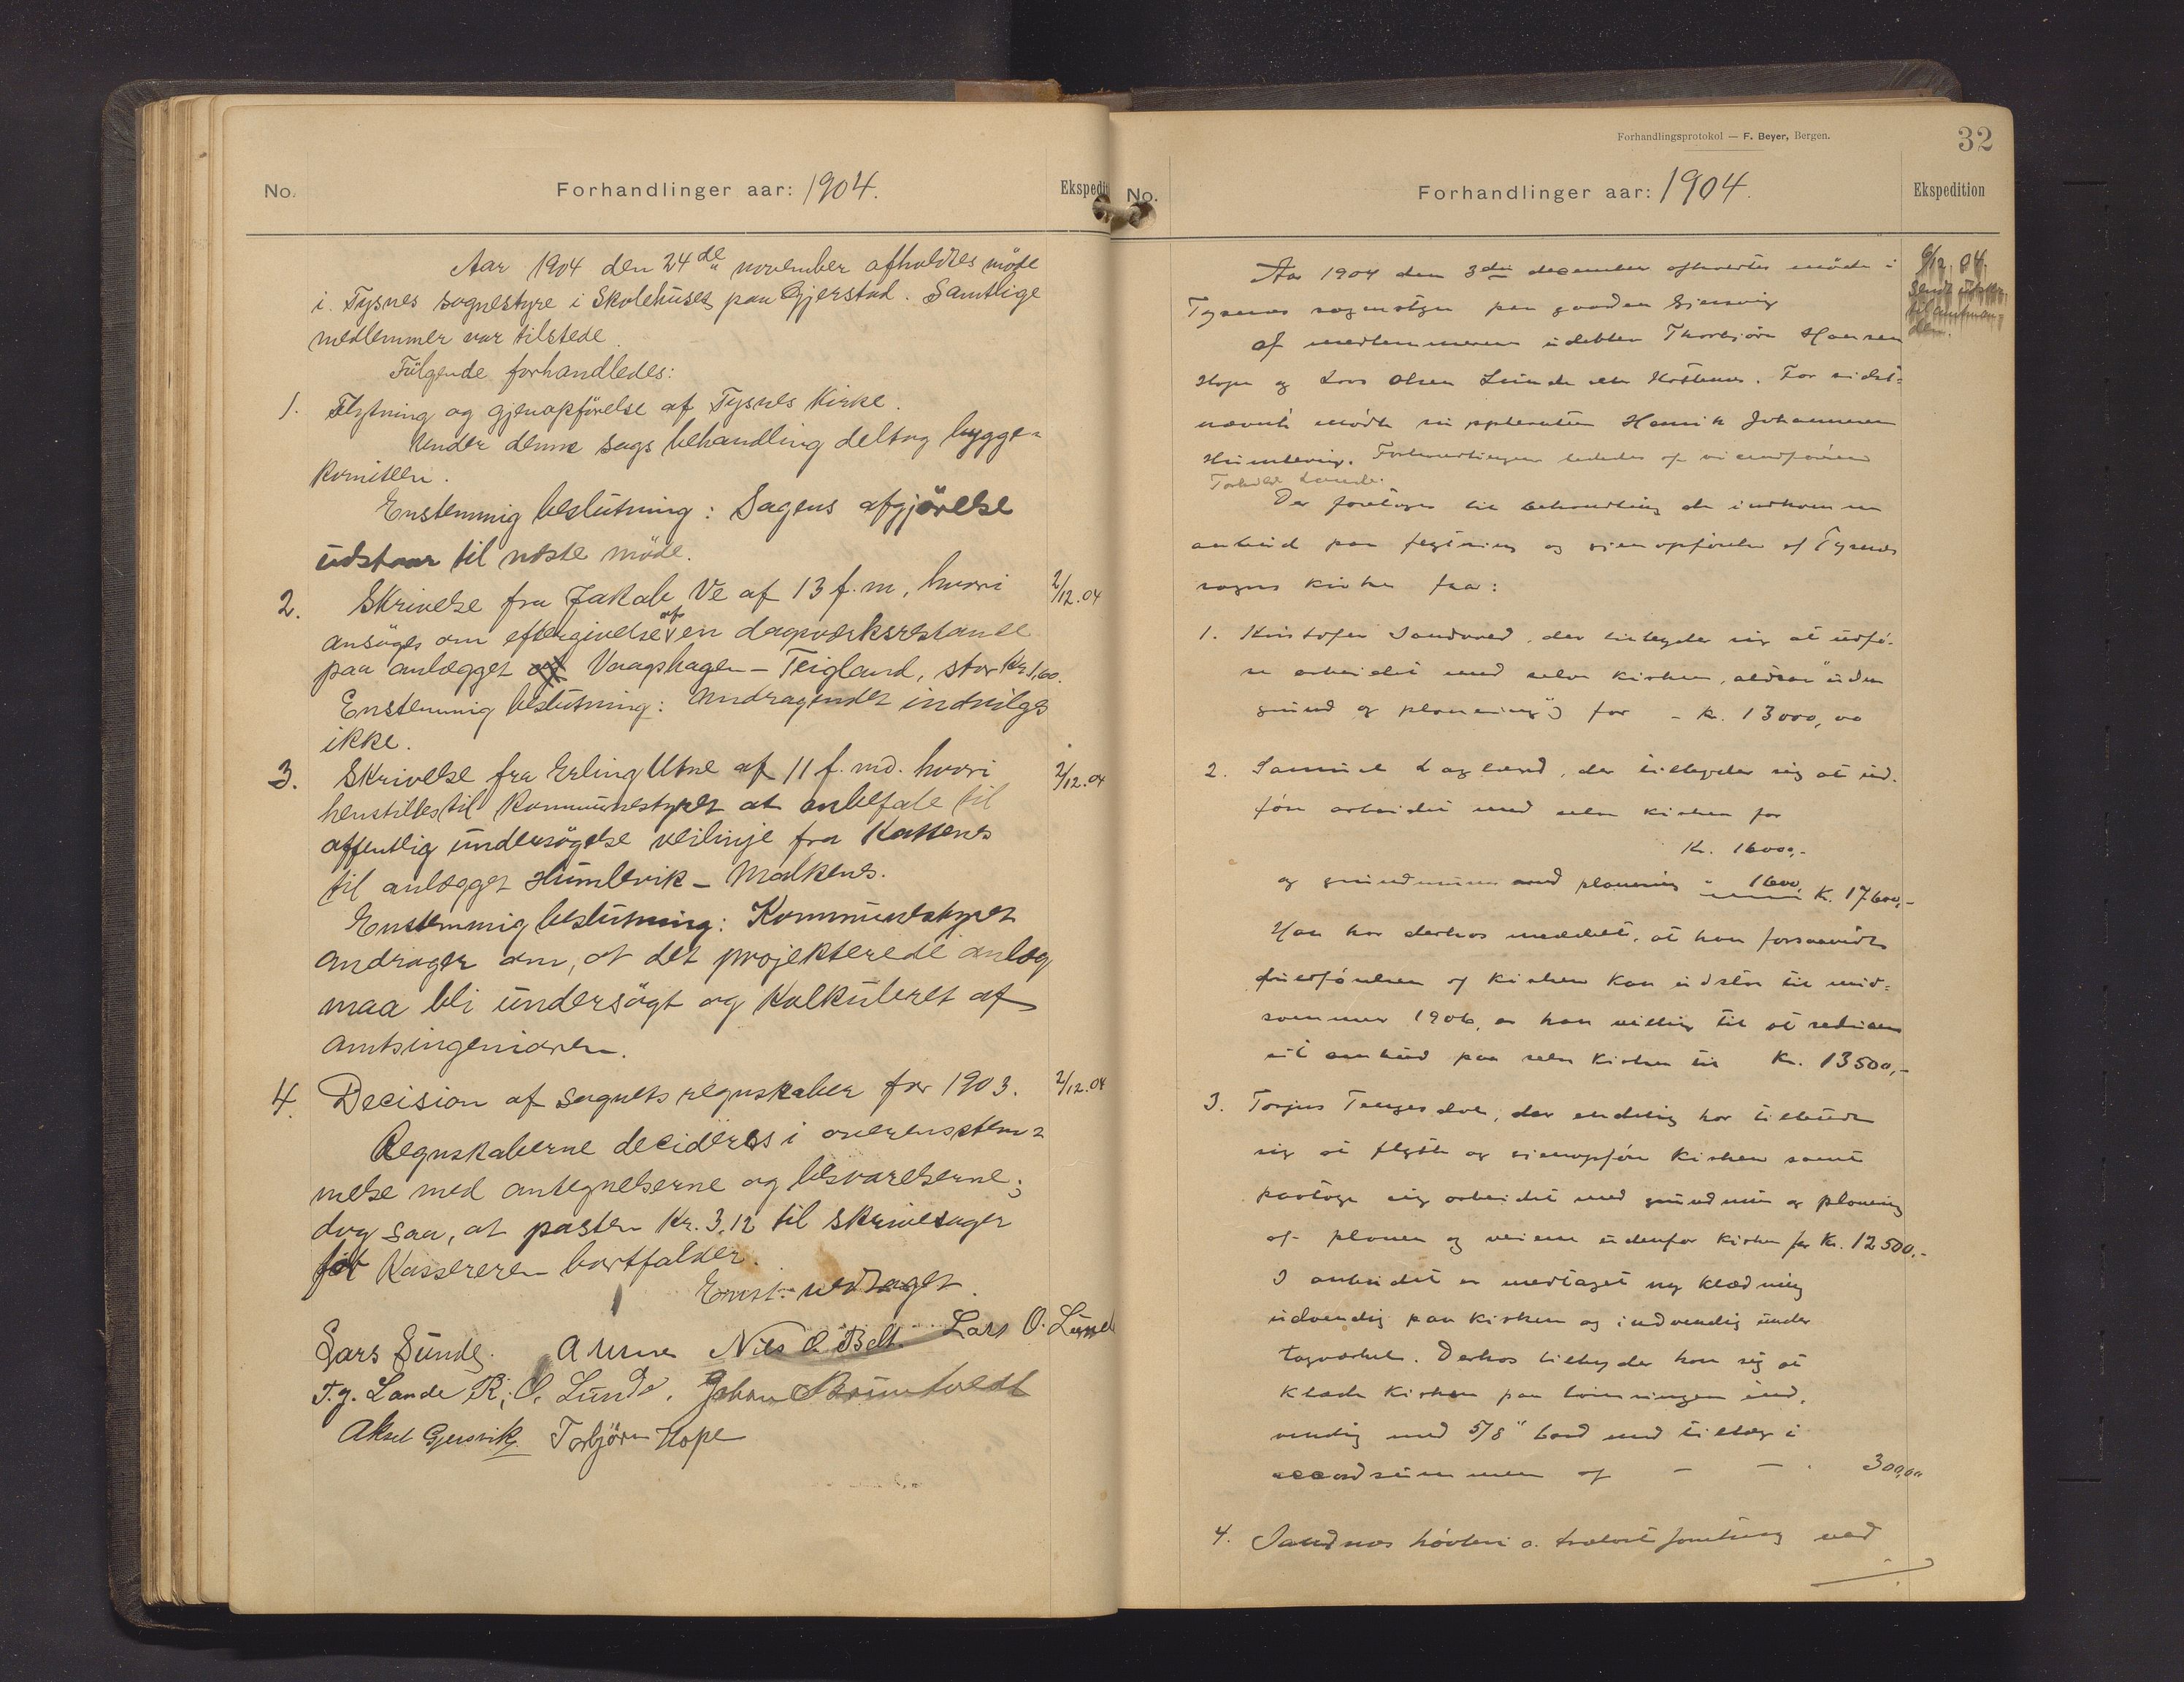 No.
Forhandlinger aar: 1904.
Ekspedit
Aar 1904 den 24de november afholdtes möde
i Tysnes sognestyre i Skolehuset paa Gjerstad. Samtlige
medlemmer var tilstede.
Fölgende forhandledes:
1. Flytning og gjenopförelse af Tysnes Kirke.
Under denne sags behandling deltog bygge-
komiteen.
Enstemmig beslutning: Sagens afgjörelse
udstaar til næste möde.
2. Skrivelse fra Jakob Ve af 13 f.m, hvori 2/12.04
ansöges om eftergivelse af en dagværksrestanse
paa anlægget Vaagshagen - Teigland, stor Kr 1,60.
Enstemmig beslutning: Andragendet indvilges
ikke.
3. Skrivelse fra Erling Utne af 11 f. md. hvori 2/12.04
henstilles til kommunestyret at anbefale til
offentlig undersögelse veilinje fra Kattenes
til anlægget Humlevik - Malkenes.
Enstemmig beslutning: Kommunestyret
andrager om, at det projekterede anlæg
maa bli undersögt og kalkuleret af
amtsingeniören.
4. Decision af sognets regnskaber for 1903. 2/12.04
Regnskaberne decideres i overensstem-
melse med antegnelserne og besvarelserne;
dog saa, at posten Kr. 3,12 til skrivesager
for Kassereren bortfalder.
Enst. vedtaget.
Lars Sunde. A Utne Nils O. Belt. Lars O. Lunde
T. J. Lande R. O. Lunde. Johan Brüntvedt
Aksel Gjersvik Torbjörn Hope
Forhandlingsprotokol — F. Beyer, Bergen.
32
No.
Forhandlinger aar: 1904.
Ekspedition
9/12.04.
Sendt udskr.
til amtman-
den.
Aar 1904 den 3die december afholdtes möde i
Tysnes sognestyre paa gaarden Gjersvig
Af medlemmerne udeblev Thorbjörn Hansen
Hope og Lars Olsen Lunde eller Kattenes. For sidst-
nævnte mödte suppleanten Henrik Johannesen
Humlevig. Forhandlingen lededes af viceordföreren
Torkild Lande.
Der foretoges til behandling de indkomne
anbud paa flytning og gjenopförelse af Tysnes
sogns kirke fra:
1. Kristofer Sandvad, der tilbyder sig at udfö-
re arbeidet med selve kirken, altsaa "uden
grund og planering") for - kr. 13000,00
2. Samuel Lagland, der tilbyder sig at ud-
före arbeidet med selve kirken for
Kr. 16000,-
og grundmuren med planering " 1600, Kr. 17600,-
Han har derhos meddelt, at han forsaavidt
fuldförelsen af kirken kan udstaa til mid-
sommer 1906, er han villig til at reducere
sit anbud paa selve kirken til Kr. 13500,-
3. Torjus Tengesdal, der endelig har tilbudt
sig at flytte og gjenopföre kirken samt
paatage sig arbeidet med grundmur og planering
af planen og veiene udenfor kirken for Kr. 12500,-
I anbudet er medtaget ny klædning
udvendig paa kirken og indvendig under
tagværket. Derhos tilbyder han sig at
klæde kirken paa tömringen ind-
vendig med 5/8" bord med tillæg i
accordsummen af - - 300,00
4. Sandnes hövleri o. trælastforretning ved